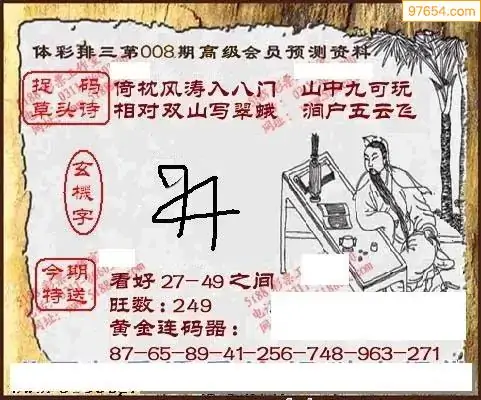 97654.com
体彩排三第008期高级会员预测资料
捉码草头诗
倚枕风涛入八门 山中九可玩
相对双山写翠蛾 涧户五云飞
玄機字
今期特送
看好27-49之间
旺数:249
黄金连码器:
87-65-89-41-256-748-963-271